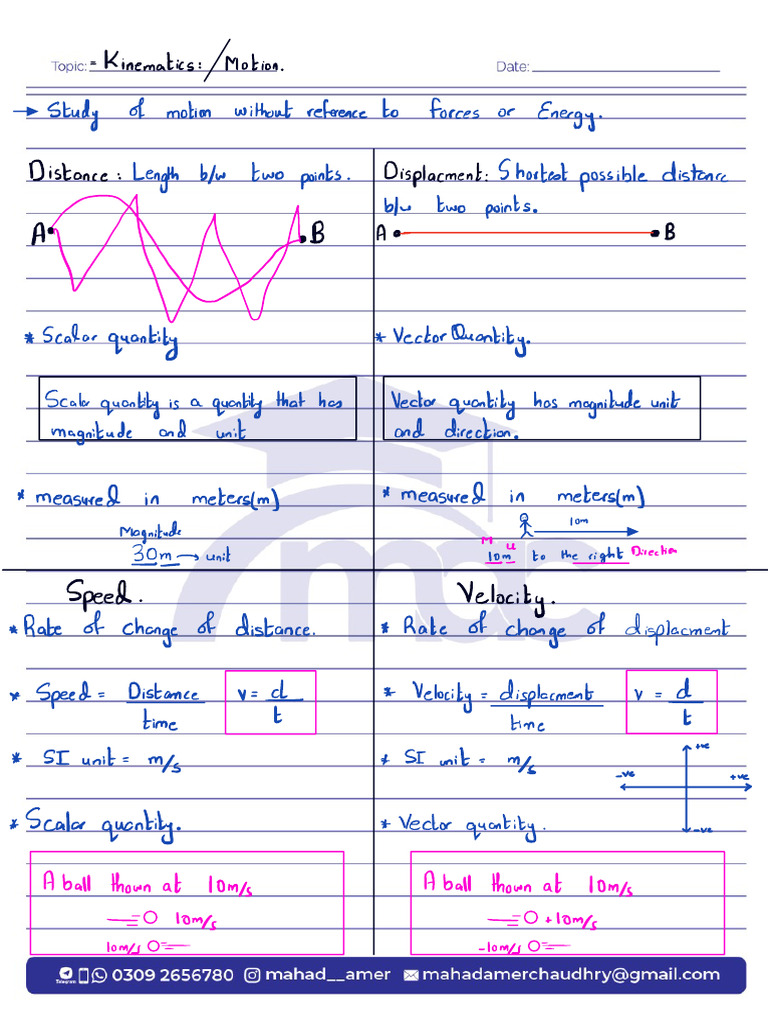 Topic: = Kinematics: / Motion.
Date:
→ Study of motion without reference to forces or Energy.
Distance : Length b/w two points.
A B
* Scalar quantity
Scalar quantity is a quantity that has
magnitude and unit
* measured in meters(m)
Magnitude
30m → unit
Displacment: Shortest possible distance
b/w two points.
A B
* Vector Quantity.
Vector quantity has magnitude unit
and direction.
* measured in meters(m)
10m
M U
10m to the right Direction
Speed.
* Rate of change of distance.
* Speed = Distance
time
v = d
t
* SI unit = m/s
* Scalar quantity.
A ball thown at 10m/s
10m/s
10m/s
Velocity.
* Rate of change of displacment
* Velocity = displacment
time
v = d
t
* SI unit = m/s
+ve
-ve +ve
-ve
* Vector quantity.
A ball thown at 10m/s
+10m/s
-10m/s
mac
Telegram 0309 2656780 mahad__amer mahadamerchaudhry@gmail.com